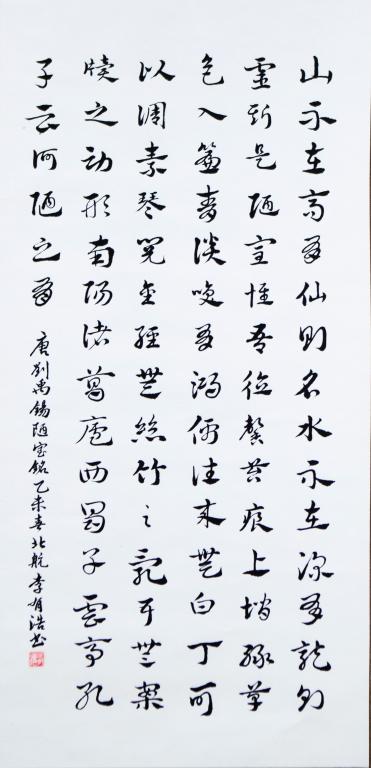 山不在高有仙则名水不在深有龍则
靈斯是陋室惟吾德馨苔痕上堦綠草
色入簾青談唉有鴻儒往来無白丁可
以调素琴閱金經無絲竹之亂耳無案
牍之劳形南陽诸葛廬西蜀子雲亭孔
子云何陋之有
唐劉禹錫陋室銘乙未春北航李有浩书